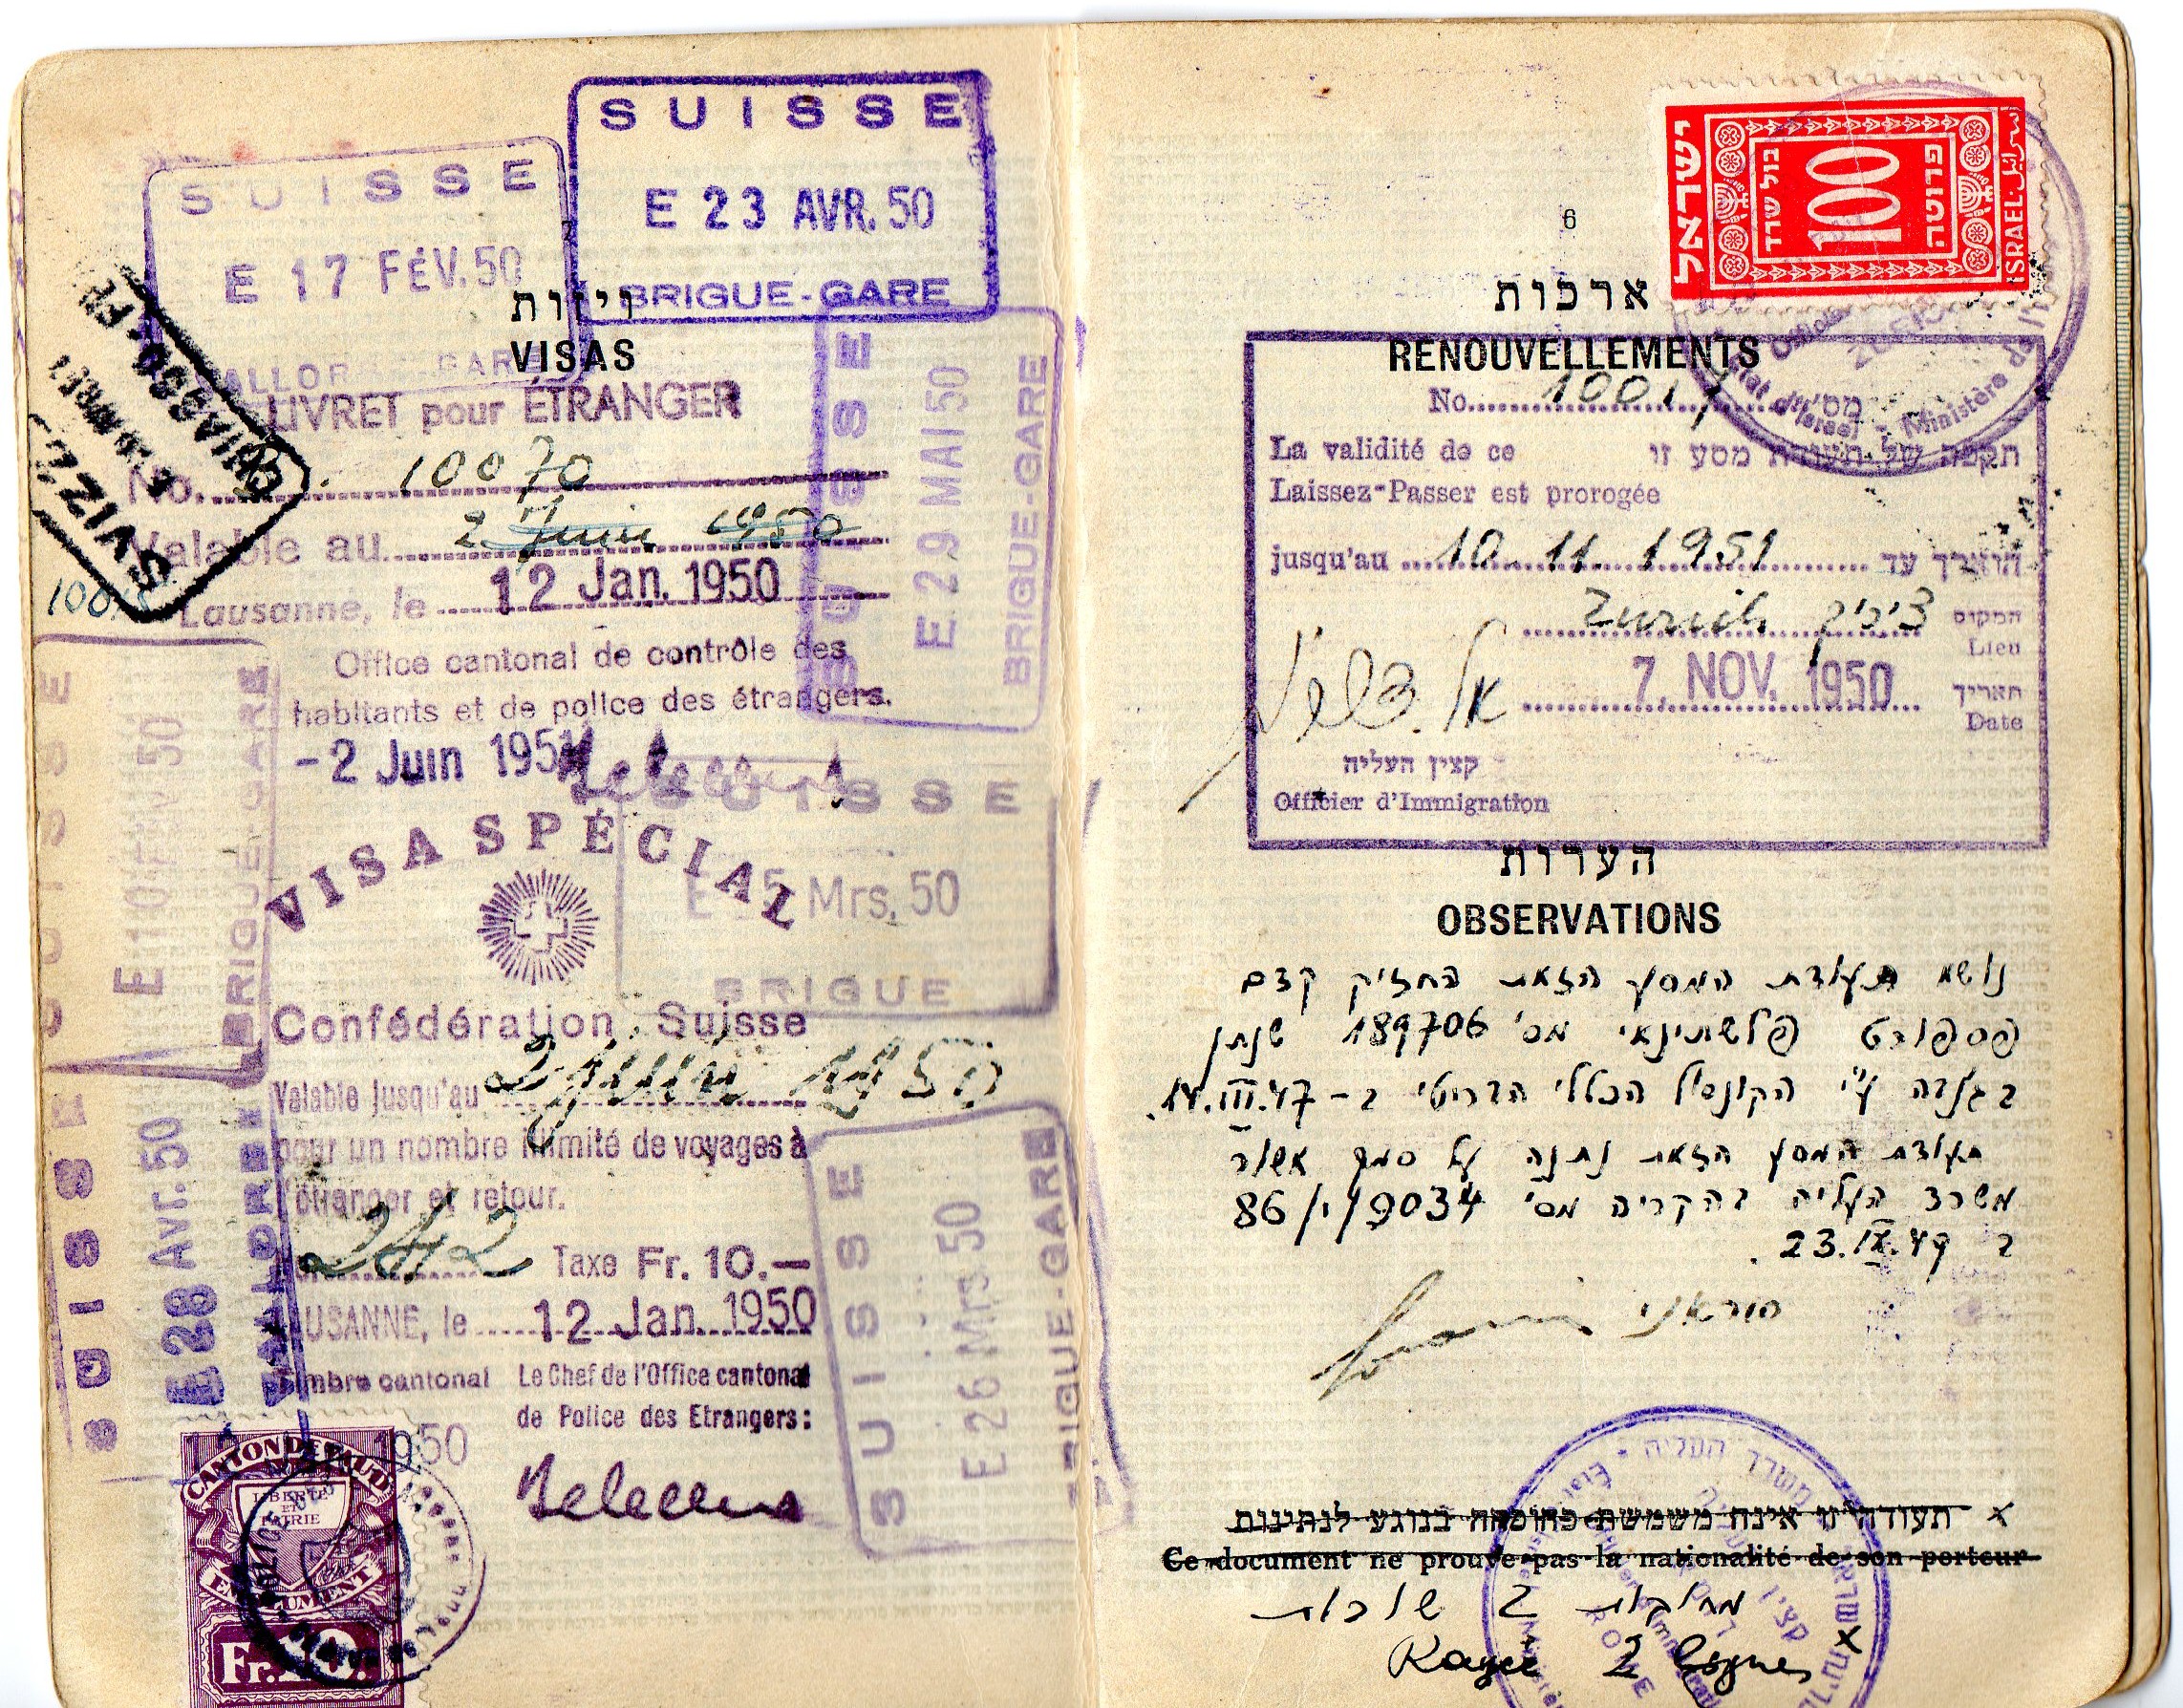 SUISSE
E 23 AVR. 50
BRIGUE-GARE
SUISSE
E 17 FÉV. 50
GARE
ויזות
VISAS
LIVRET pour ÉTRANGER
No. 10070
Valable au 2 Juin 1950
Lausanne, le 12 Jan. 1950
Office cantonal de contrôle des
habitants et de police des étrangers.
-2 Juin 1951
VISA SPÉCIAL
Confédération Suisse
Valable jusqu'au 2 juin 1950
pour un nombre illimité de voyages à
l'étranger et retour.
242 Taxe Fr. 10.—
LAUSANNE, le 12 Jan. 1950
Timbre cantonal Le Chef de l'Office cantonal
de Police des Etrangers:
CANTON DE VAUD
LIBERTÉ
ET
PATRIE
EMOLUMENT
Fr.
1950
CHIASSO
SVIZZ
SUISSE
E 29 MAI 50
BRIGUE-GARE
SUISSE
E 5 Mrs. 50
BRIGUE
SUISSE
E 26 Mrs 50
BRIGUE-GARE
SUISSE
E 50
BRIGUE-GARE
SUISSE
E 28 Avr. 50
VALLORBE
6
ישראל
בול שרד
100
פרוטה
ISRAEL
ארכות
RENOUVELLEMENTS
No. 1001 מס'
La validité de ce תקפה של תעודת מסע זו
Laissez-Passer est prorogée
jusqu'au 10.11.1951 הוארך עד
Zurich ציריך המקום
Lieu
7. NOV. 1950 תאריך
Date
קצין העליה
Officier d'Immigration
הערות
OBSERVATIONS
נושא תעודת המסע הזאת החזיק קדם
פספורט פלשתינאי מס' 189706 שנתן
בגנבה ע"י הקונסול הכללי הבריטי ב-14.III.47.
תעודת המסע הזאת נתנה על סמך אשור
משרד העליה בהקריה מס' 86/1/9034
ב 23.IX.49.
תעודה זו אינה משמשת כהוכחה בנוגע לנתינות x
Ce document ne prouve pas la nationalité de son porteur
מחוקות 2 שורות
Rayé 2 lignes x
משרד העליה
ROME